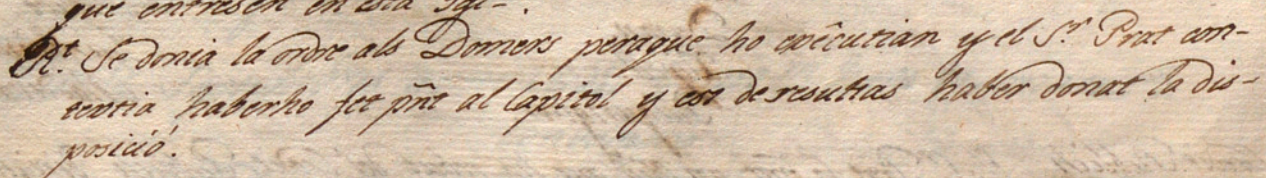 que entresen en esta Igl.ª.
R.t Se donia la ordre als Domers peraque ho execútian y el S.r Prat con-
testia haberho fet pñt al Capitol y est de resultas haber donat la dis-
posició.